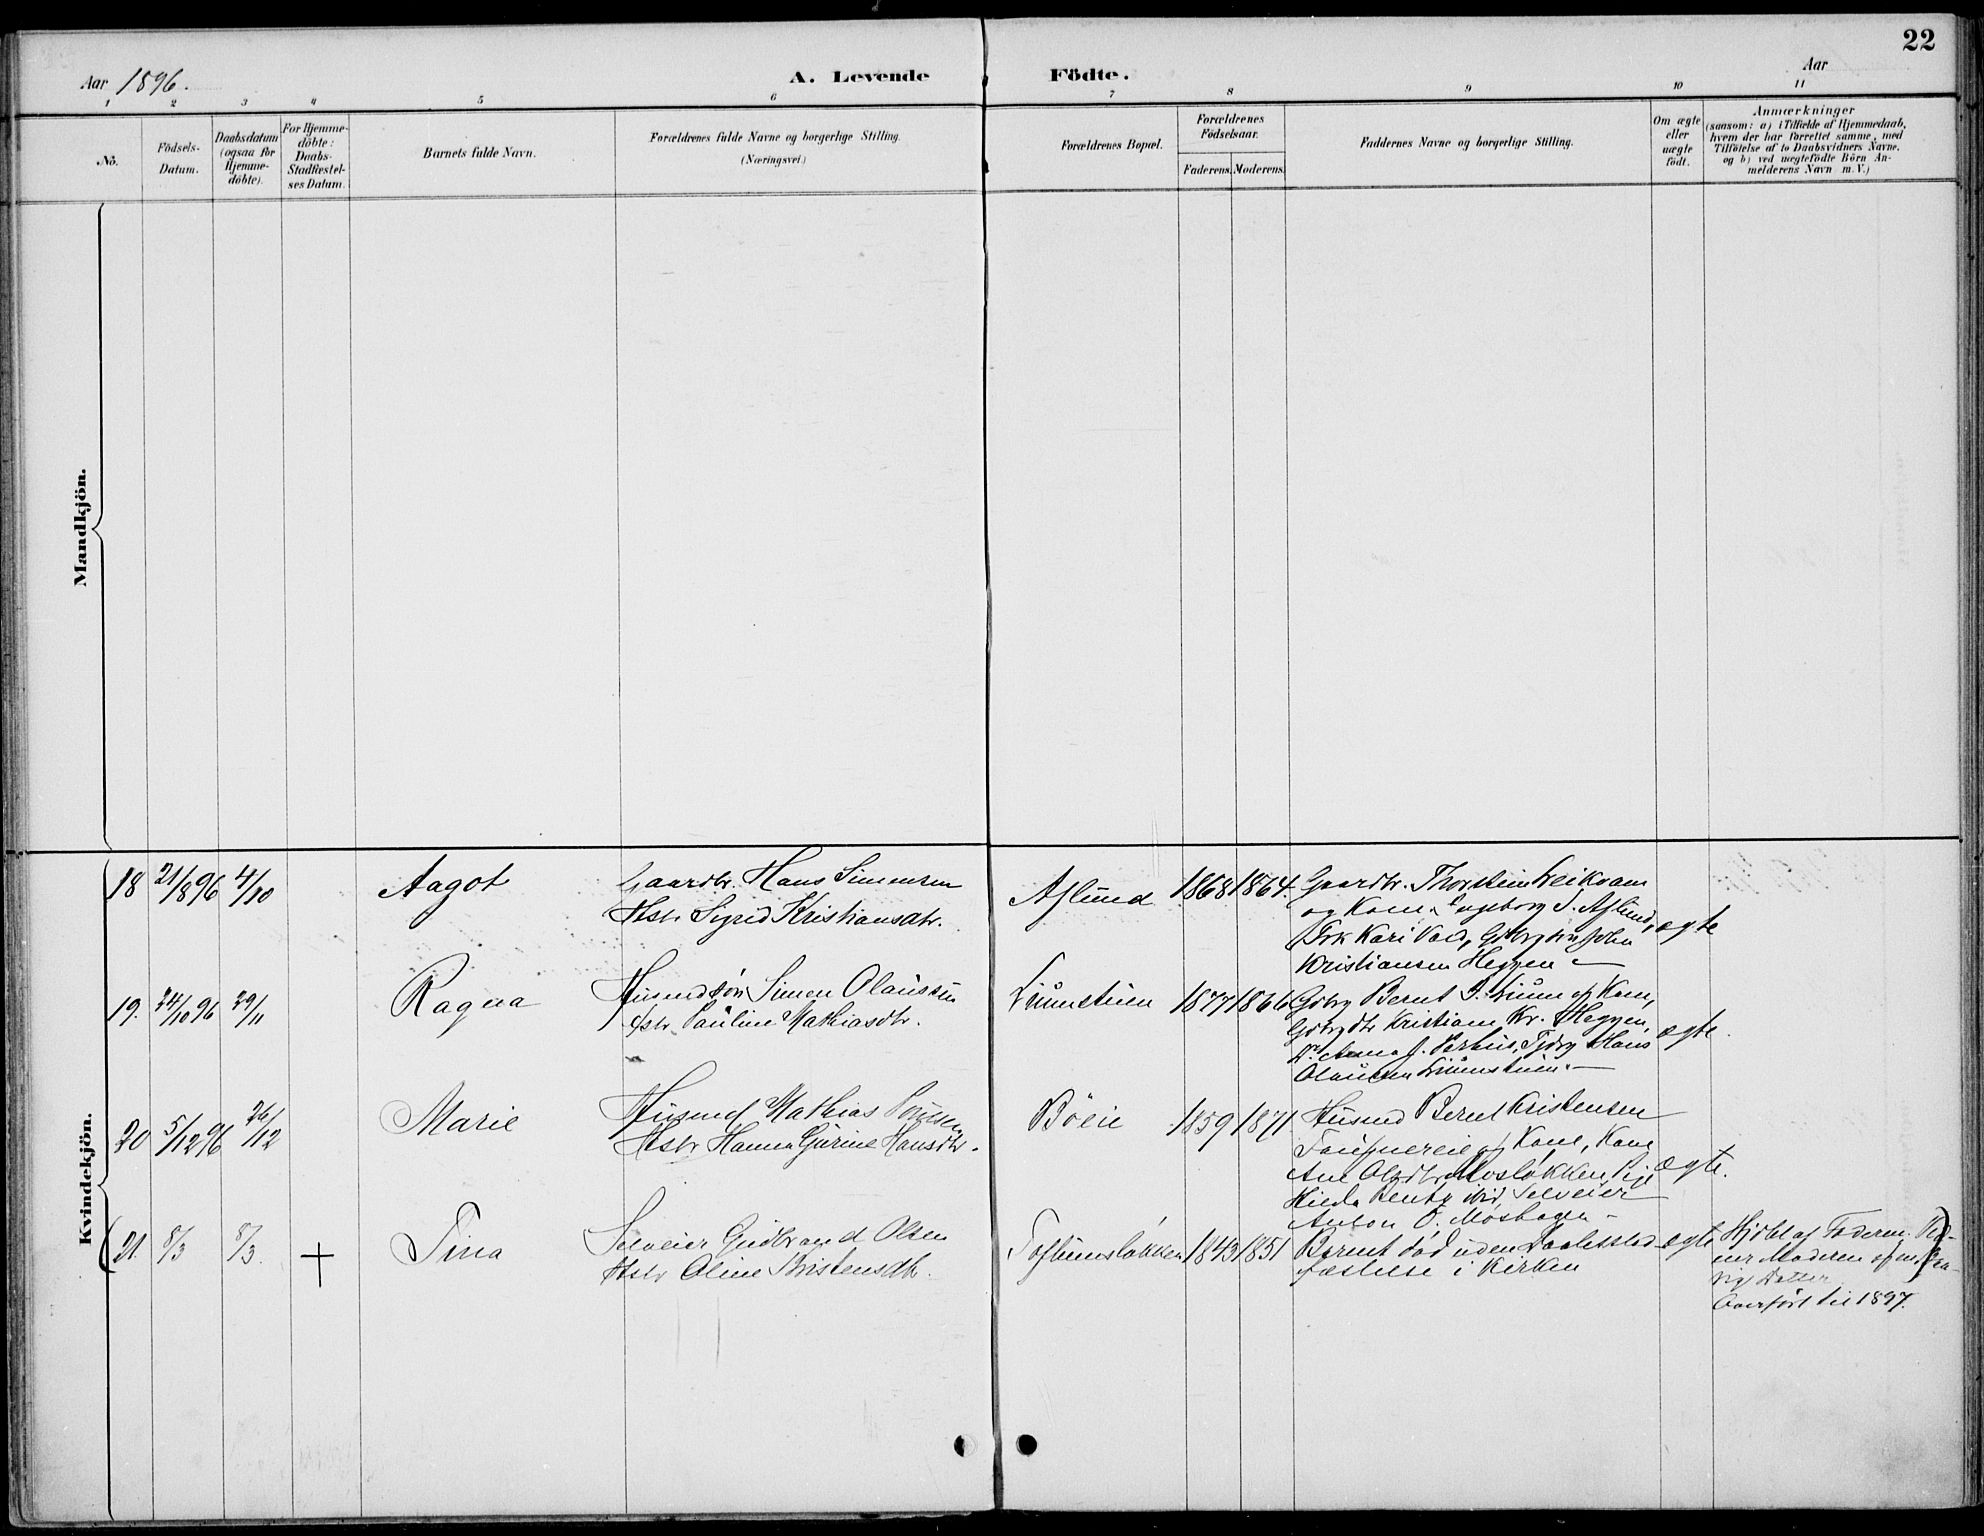 22
Aar 1896.
A. Levende Födte.
Aar
1 2 3 4 5 6 7 8 9 10 11
No.
Födsels-
Datum.
Daabsdatum
(ogsaa for
Hjemme-
döbte).
For Hjemme-
döbte:
Daabs-
Stadfæstel-
ses Datum.
Barnets fulde Navn.
Forældrenes fulde Navne og borgerlige Stilling.
(Næringsvei.)
Forældrenes Bopæl.
Forældrenes
Födselsaar.
Faderens. Moderens.
Faddernes Navne og borgerlige Stilling.
Om ægte
eller
uægte
födt.
Anmærkninger
(saasom: a) i Tilfælde af Hjemmedaab,
hvem der har forrettet samme, med
Tilföielse af to Daabsvidners Navne.
og b) ved uægtefödte Börn An-
melderens Navn m.V.)
Mandkjön.
Kvindekjön.
18 21/8 96 4/10 Aagot
Gaardbr. Hans Simensen
Hstr Sigrid Kristiansdtr.
Aslund 1868 1864.
Gaardbr. Thorstein Leikvam
og Kone, Ingeborg S. Aslund,
Kari
Kristiansen Heggen
ægte
19. 24/10 96 29/11 Ragna
Husmdsön Simen Olaussen
Hstr Pauline Mathiasdtr.
Liumstuen 1877 1866
Gdbrg Bernt S. Lium og Kone,
Gdbrgdtr Kristiane Kr. Heggen,
Anna J. Hans
Olaussen Liumstuen.
ægte.
20 5/12 96 26/12 Marie
Husmd Mathias
Hstr Hanna Gurine Hansdtr.
Böeie 1859 1871
Husmd Bernt Kristensen
og Kone, Kone
Ane Olsdtr Mosløkken, Pige
Hilda Selveier
Anton O. Moshagen
ægte.
21. 8/3 8/3. † Tina
Selveier Gudbrand Olsen
Hstr Oline Kristensdtr.
Toftumsløkken 1843 1851
Barnet död uden Daabsstad-
fæstelse i Kirken
ægte
Hjdbt af Faderen. Vid-
ner Moderen og
Datter
Overfört til 1897.